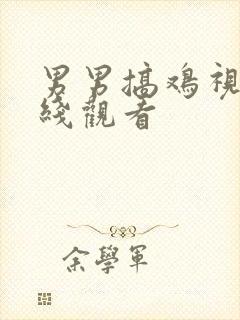 男男搞鸡視
綫觀看
余學軍